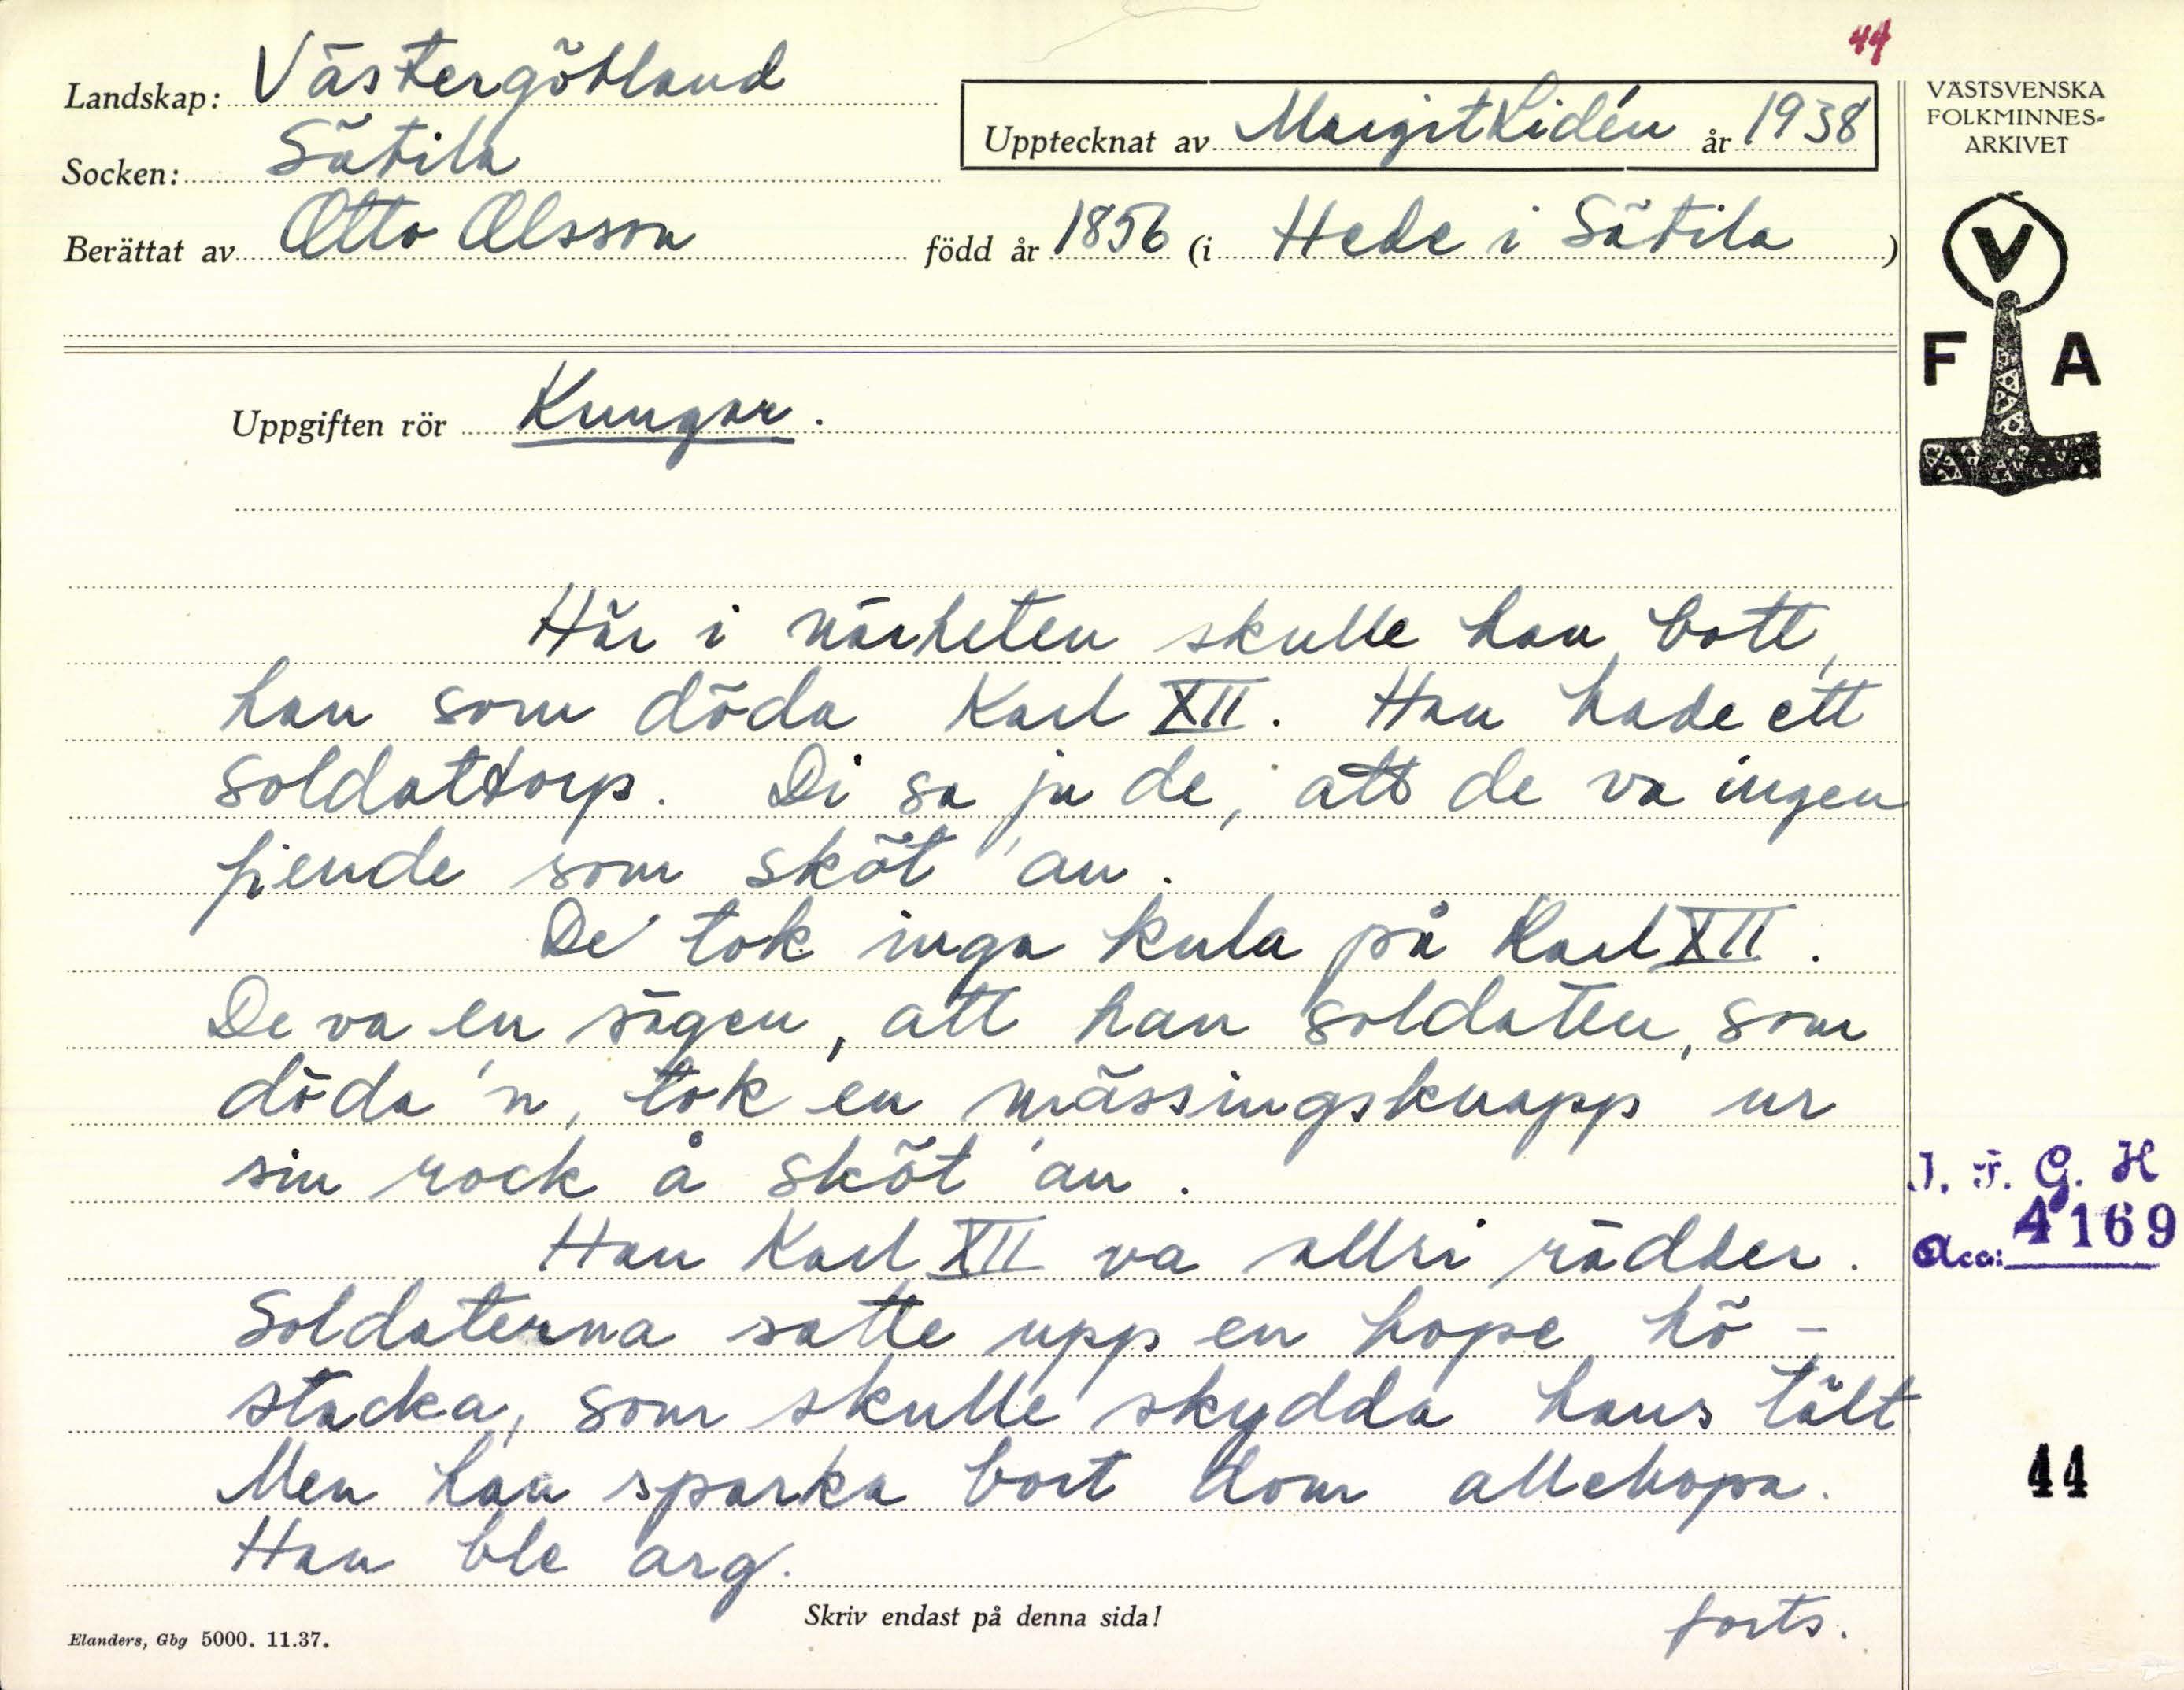 44
Landskap: Västergötland
Socken: Sätila
Berättat av Otto Olsson född år 1856 (i Hede i Sätila)
Upptecknat av Margit Lidén år 1938
VÄSTSVENSKA
FOLKMINNES-
ARKIVET
V
F A
Uppgiften rör Kungar.
Här i närheten skulle han bott,
han som döda Karl XII. Han hade ett
soldattorp. Di sa ju de, att de va ingen
fiende som sköt 'an.
De' tok inga kula på Karl XII.
De va en sägen, att han soldaten, som
döda 'n, tok en mässingsknapp ur
sin rock å sköt 'an.
Han Karl XII va allri rädder.
Soldaterna satte upp en hope hö-
stacka, som skulle skydda hans tält
Men han sparka bort dom allehopa.
Han ble arg.
forts.
I. F. G. H
Acc: 4169
44
Skriv endast på denna sida!
Elanders, Gbg 5000. 11.37.